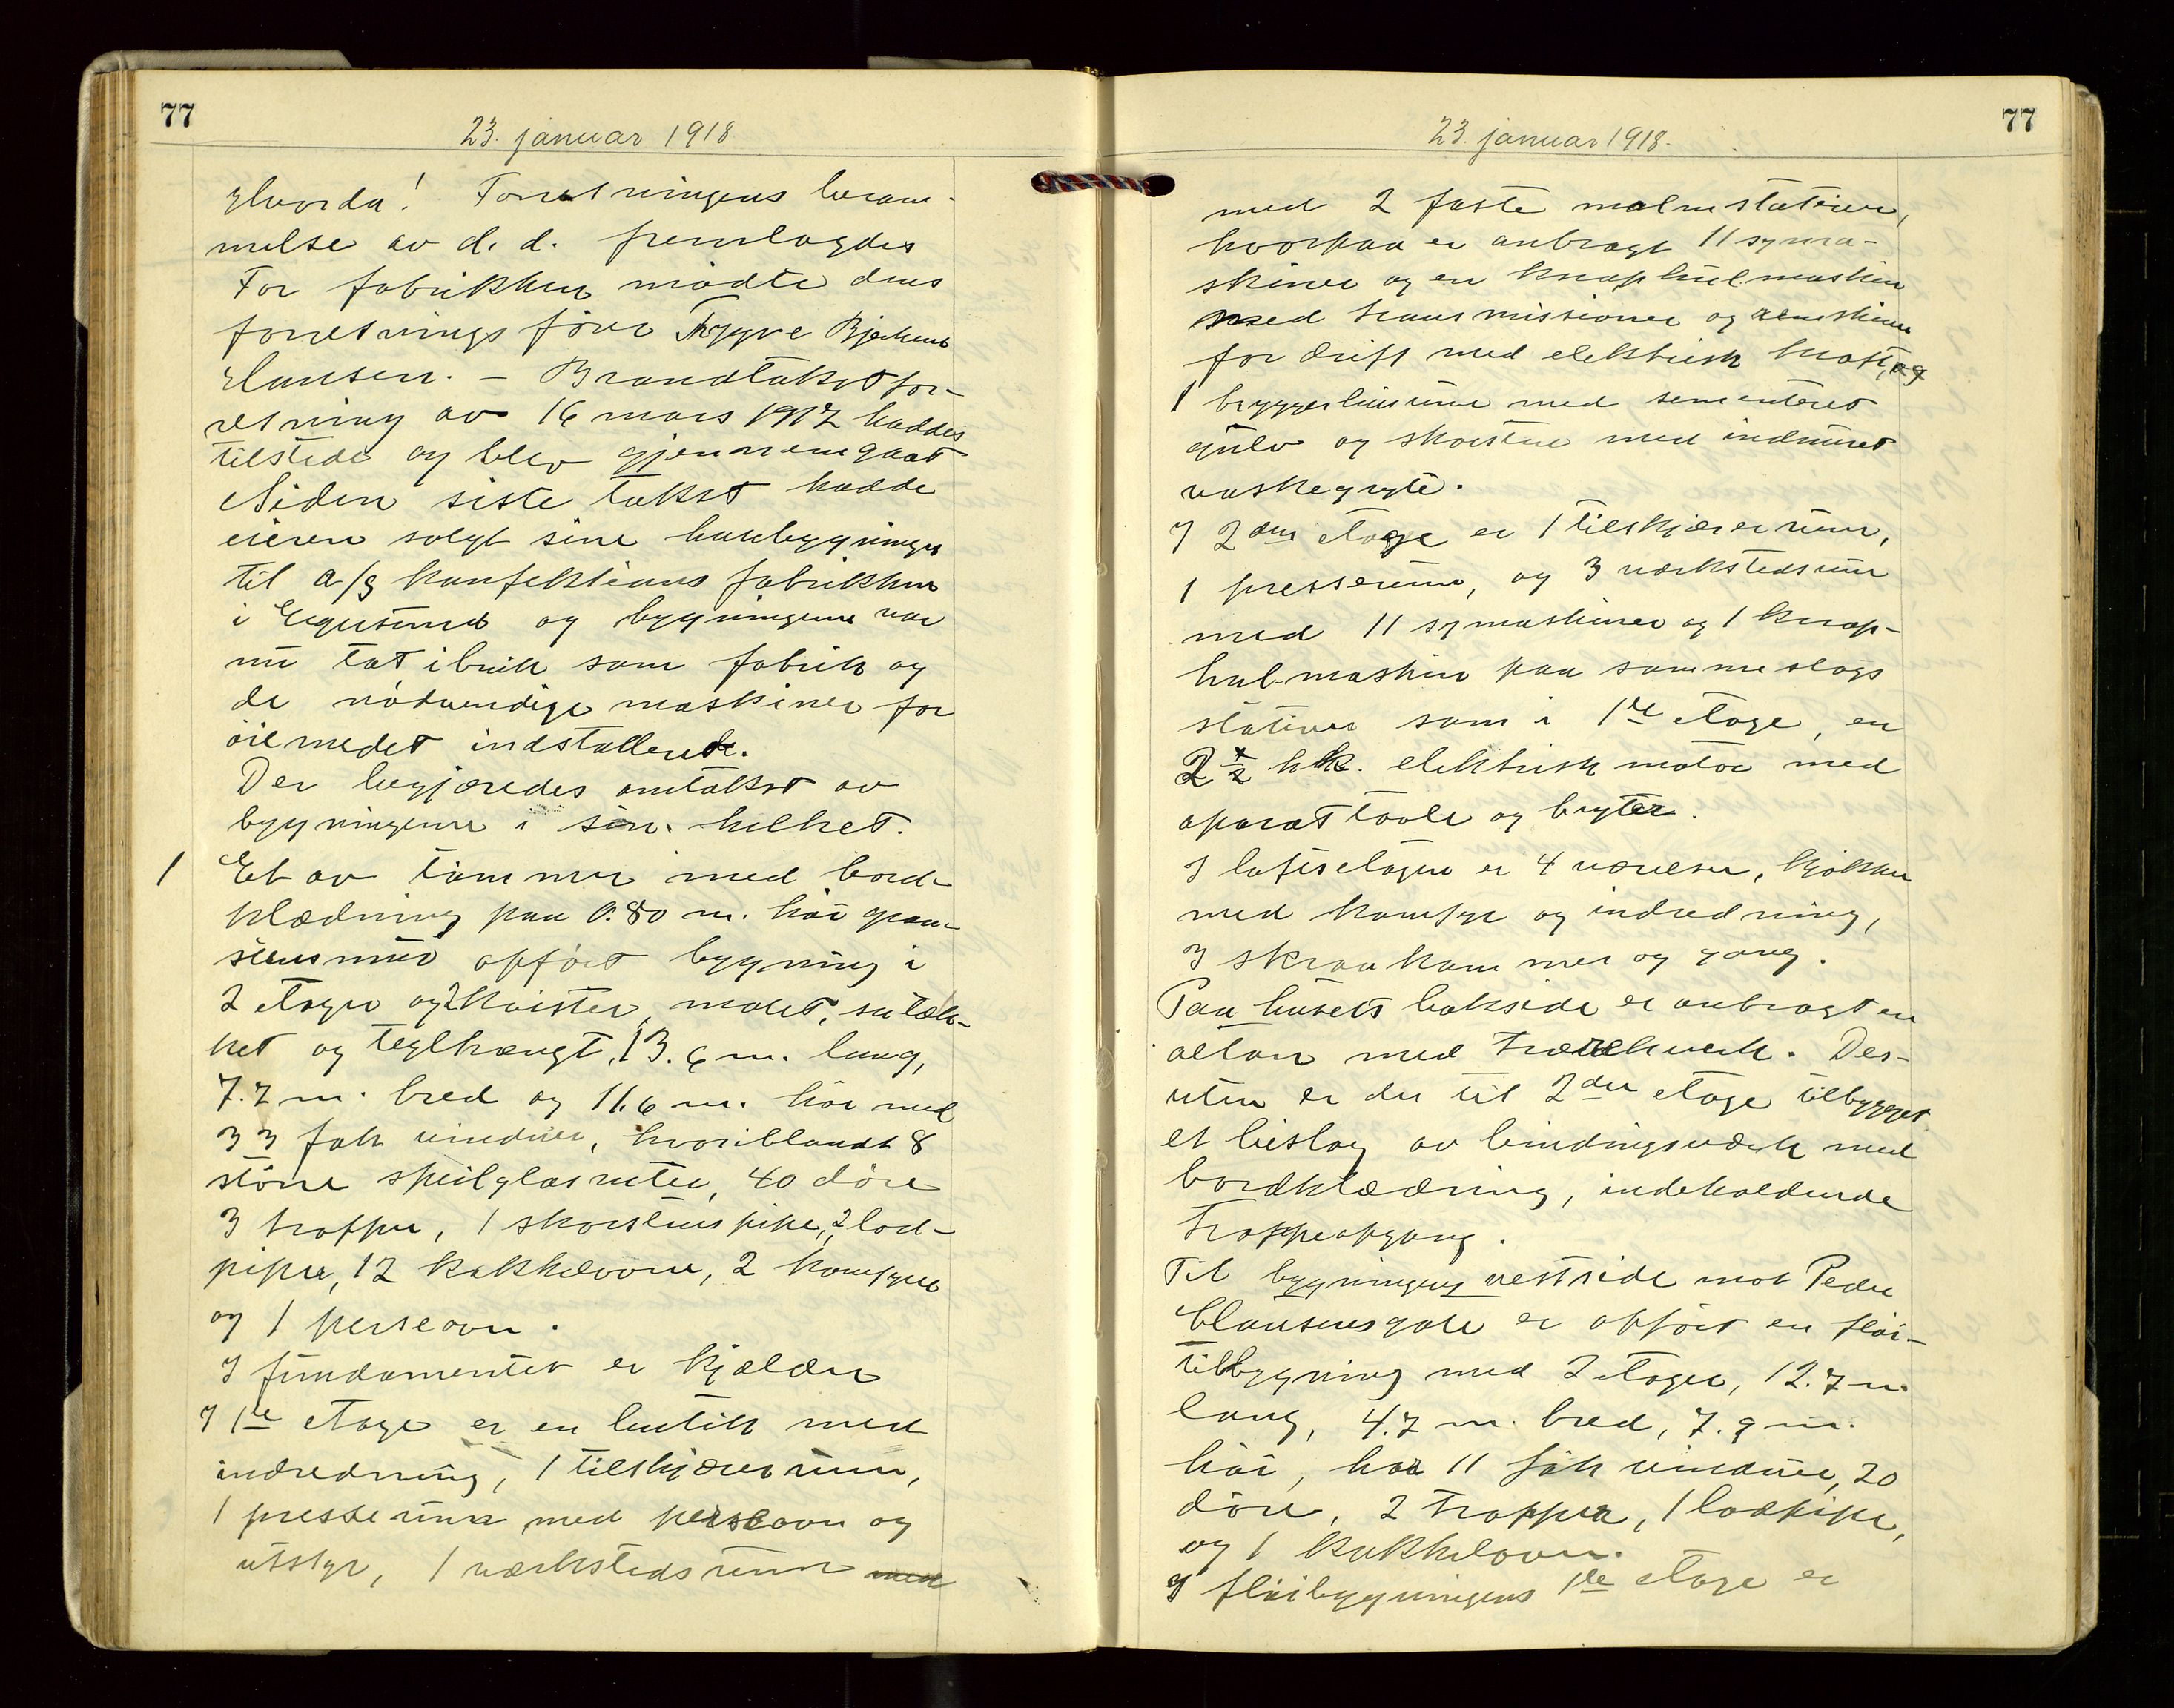 77
23. januar 1918
Hvorda! Forretningens beram-
melse av d. d. fremlagdes
For fabrikken mødte dens
forretningsfører Trygve Bjerkens
Hansen. – Brandtakstfor-
retning av 16 mars 1917 haddes
tilstede og blev gjennemgaat
Siden siste takst hadde
eieren solgt sine husbygninger
til a/s konfektions fabrikken
i Egersund og bygningerne var
nu tat i bruk som fabrik og
de nødvendige maskiner for
øiemedet indstallerede.
Der begjæredes omtakst av
bygningerne i sin helhet.
1 Et av tømmer med bord-
klædning paa 0.80 m. høi graa-
stensmur opført bygning i
2 etager og 2 kvister, malet, sutak-
ket og teglhængt, 13.6 m. lang,
7.7 m. bred og 11.6 m. høi med
33 fak vinduer, hvoriblandt 8
større speilglasruter, 40 døre
3 trapper, 1 skorstenspipe, 2 lod-
piper, 12 kakkelovne, 2 komfyrer
og 1 perseovn.
I fundamentet er kjælder
I 1ste etage er en butik med
indredning, 1 tilskjærerrum,
1 presserum med perseovn og
utstyr, 1 værkstedsrum med
77
23. januar 1918.
med 2 faste malmstativer,
hvorpaa er anbragt 11 syma-
skiner og en knaphulmaskin
med transmissioner og remskiver
for drift med elektrisk kraft, og
1 bryggerhusrum med sementeret
gulv og skorsten med indmuret
vaskegryte.
I 2den etage er 1 tilskjærerrum,
1 presserum, og 3 værkstedsrum
med 11 symaskiner og 1 knap-
hulmaskin paa samme slags
stativer som i 1ste etage, en
2 1/2 hk. elektrisk motor med
aparattavle og bryter.
I loftsetagen er 4 værelser, kjøkken
med komfyr og indredning,
3 skraakammer og gang.
Paa husets bakside er anbragt en
altan med trærekverk. Des-
uten er der til 2den etage tilbygget
et bislag av bindingsværk med
bordklædning, indeholdende
trappeopgang.
Til bygningens vestside mot Peder
Clausensgate er opført en fløi-
tilbygning med 2 etager, 12.7 m.
lang, 4.7 m. bred, 7.9 m.
høi, har 11 fak vinduer, 20
døre, 2 trapper, 1 lodpipe,
og 1 kakkelovn.
I fløibygningens 1ste etage er